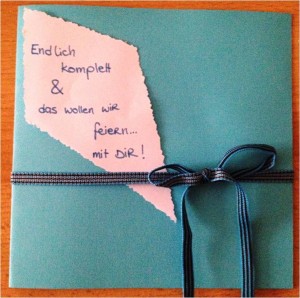 Endlich
komplett
&
das wollen wir
feiern...
mit DIR!